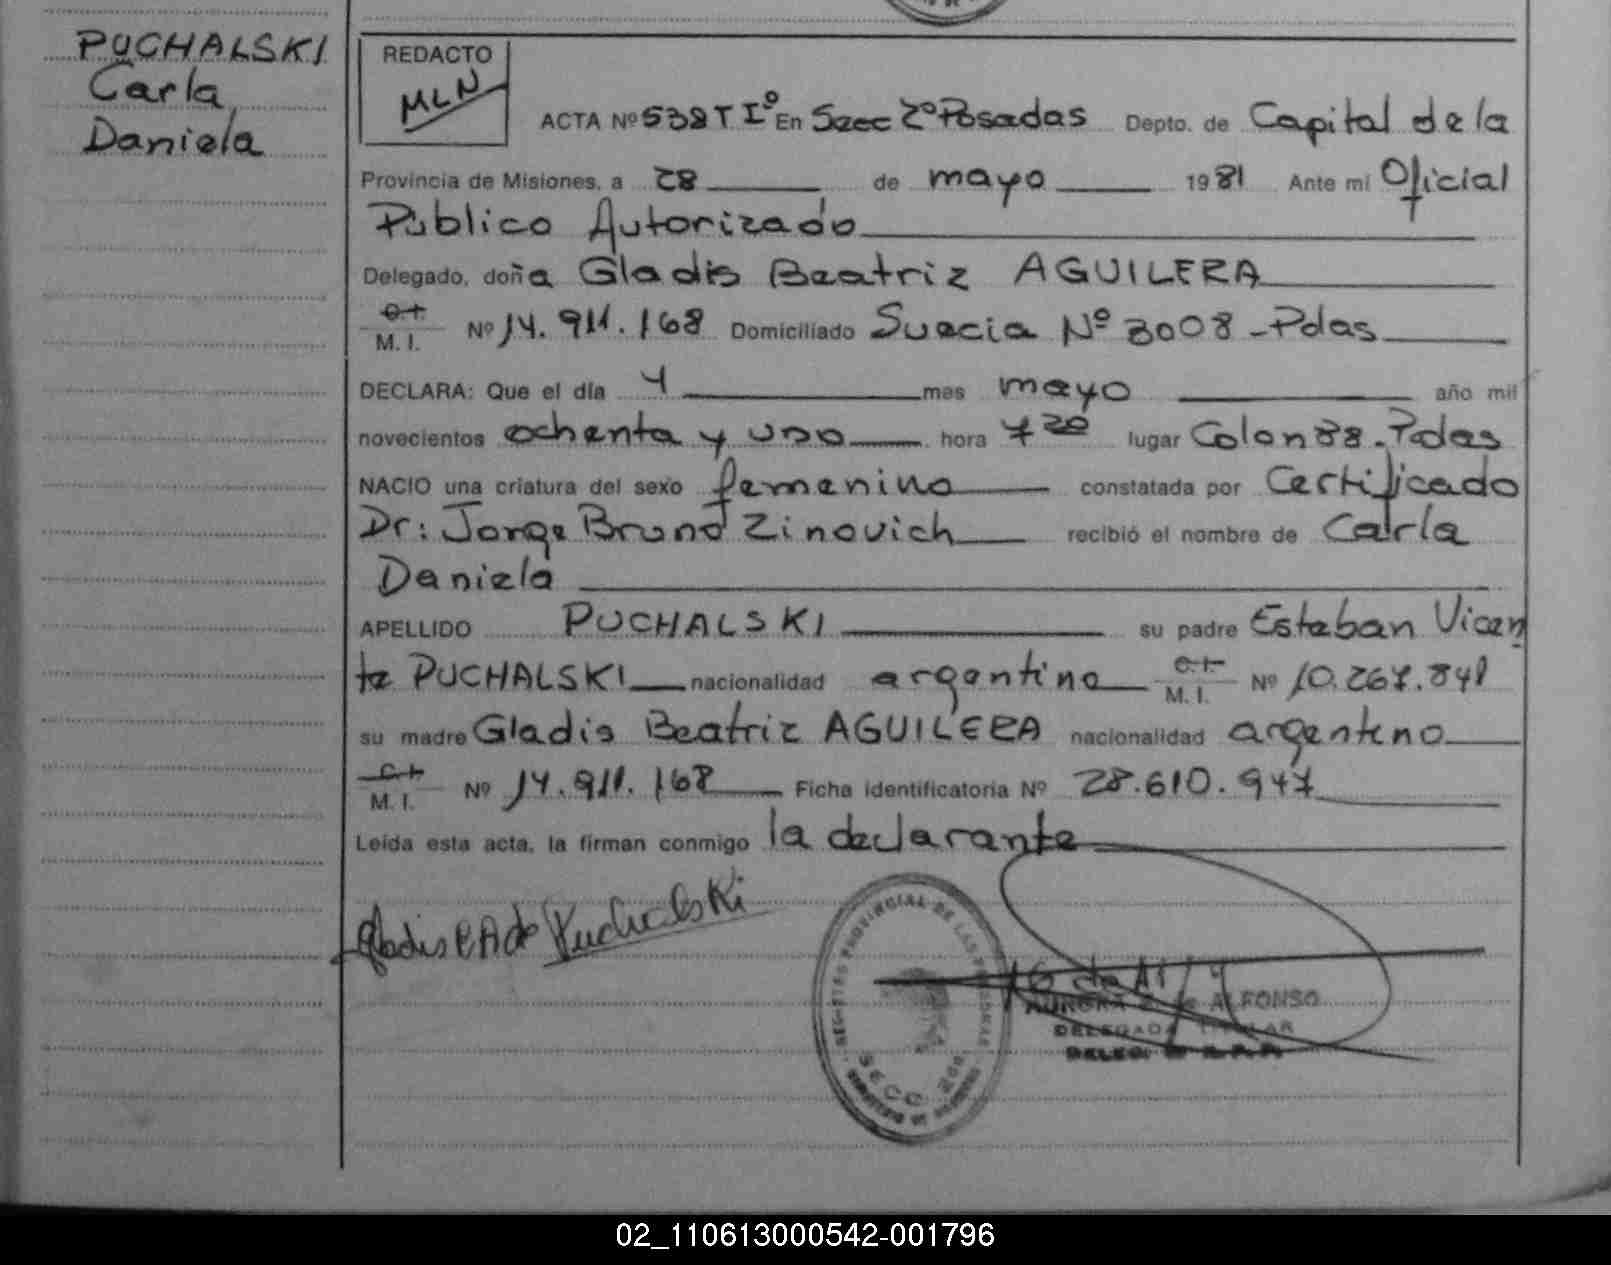 PUCHALSKI
Carla
Daniela
REDACTO
MLN
ACTA Nº 538 T Iº En Secc 2º Posadas Depto. de Capital de la
Provincia de Misiones, a 28 de mayo 1981 Ante mi Oficial
Público Autorizado
Delegado, doña Gladis Beatriz AGUILERA
M. I. Nº 14.911.168 Domiciliado Suecia Nº 3008-Pdas
DECLARA: Que el día 4 mes mayo año mil
novecientos ochenta y uno hora 7 20 lugar Colon 88-Pdas
NACIO una criatura del sexo femenino constatada por Certificado
Dr: Jorge Bruno Zinovich recibió el nombre de Carla
Daniela
APELLIDO PUCHALSKI su padre Esteban Vicen
te PUCHALSKI nacionalidad argentino M. I. Nº 10.267.841
su madre Gladis Beatriz AGUILERA nacionalidad argentino
M. I. Nº 14.911.168 Ficha identificatoria Nº 28.610.947
Leída esta acta, la firman conmigo la declarante
Gladis B A de Puchalski
REGISTRO PROVINCIAL DE LAS PERSONAS
SECC. 2da
AURORA de ALFONSO
DELEGADA TITULAR
02_110613000542-001796